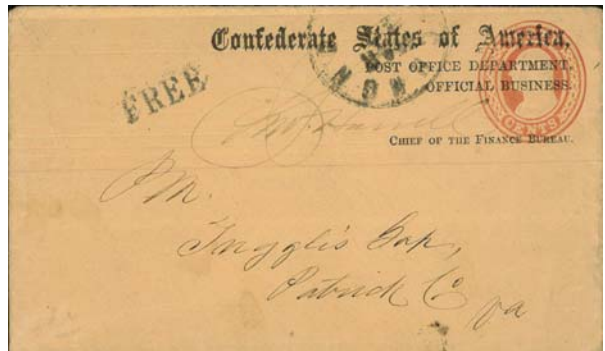 Confederate States of America,
POST OFFICE DEPARTMENT,
OFFICIAL BUSINESS.
FREE
CENTS
CHIEF OF THE FINANCE BUREAU.
P.M.
Gap,
Patrick Co
Va